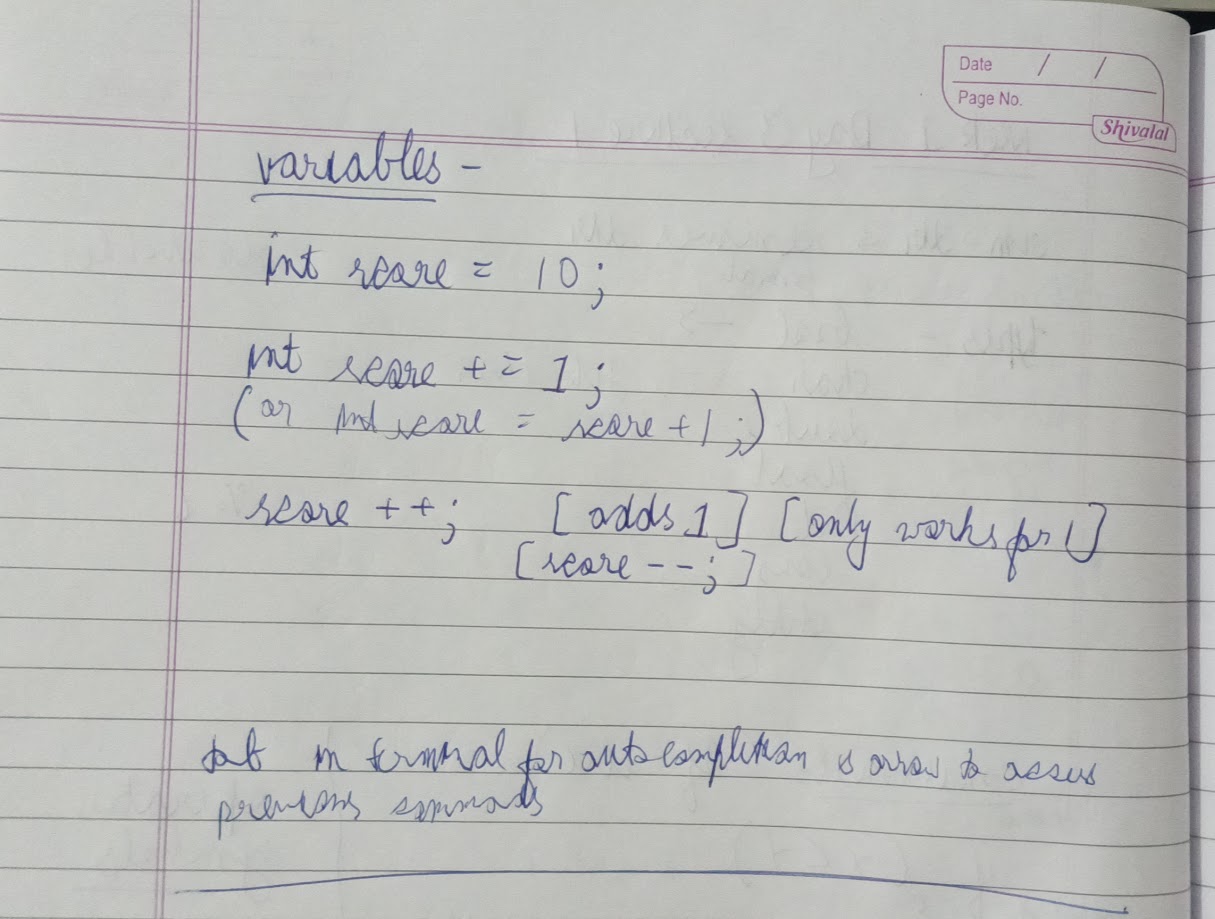 Date / /
Page No.
Shivalal
variables -
int score = 10;
int score += 1;
(or int score = score +1;)
score ++; [adds 1] [only works for 1]
[score --;]
tab in terminal for autocompletion & arrow to access
previous commads